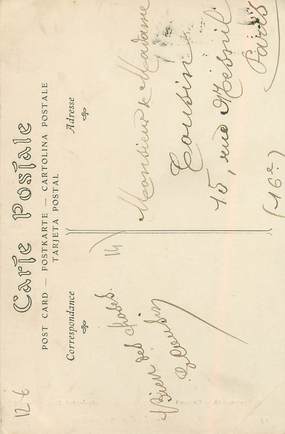 Carte Postale
POST CARD — POSTKARTE — CARTOLINA POSTALE
TARJETA POSTAL
Correspondance
Adresse
14
Bien des choses
Monsieur & Madame
Cousin
15, rue Mesnil
Paris
(16e)
12 6